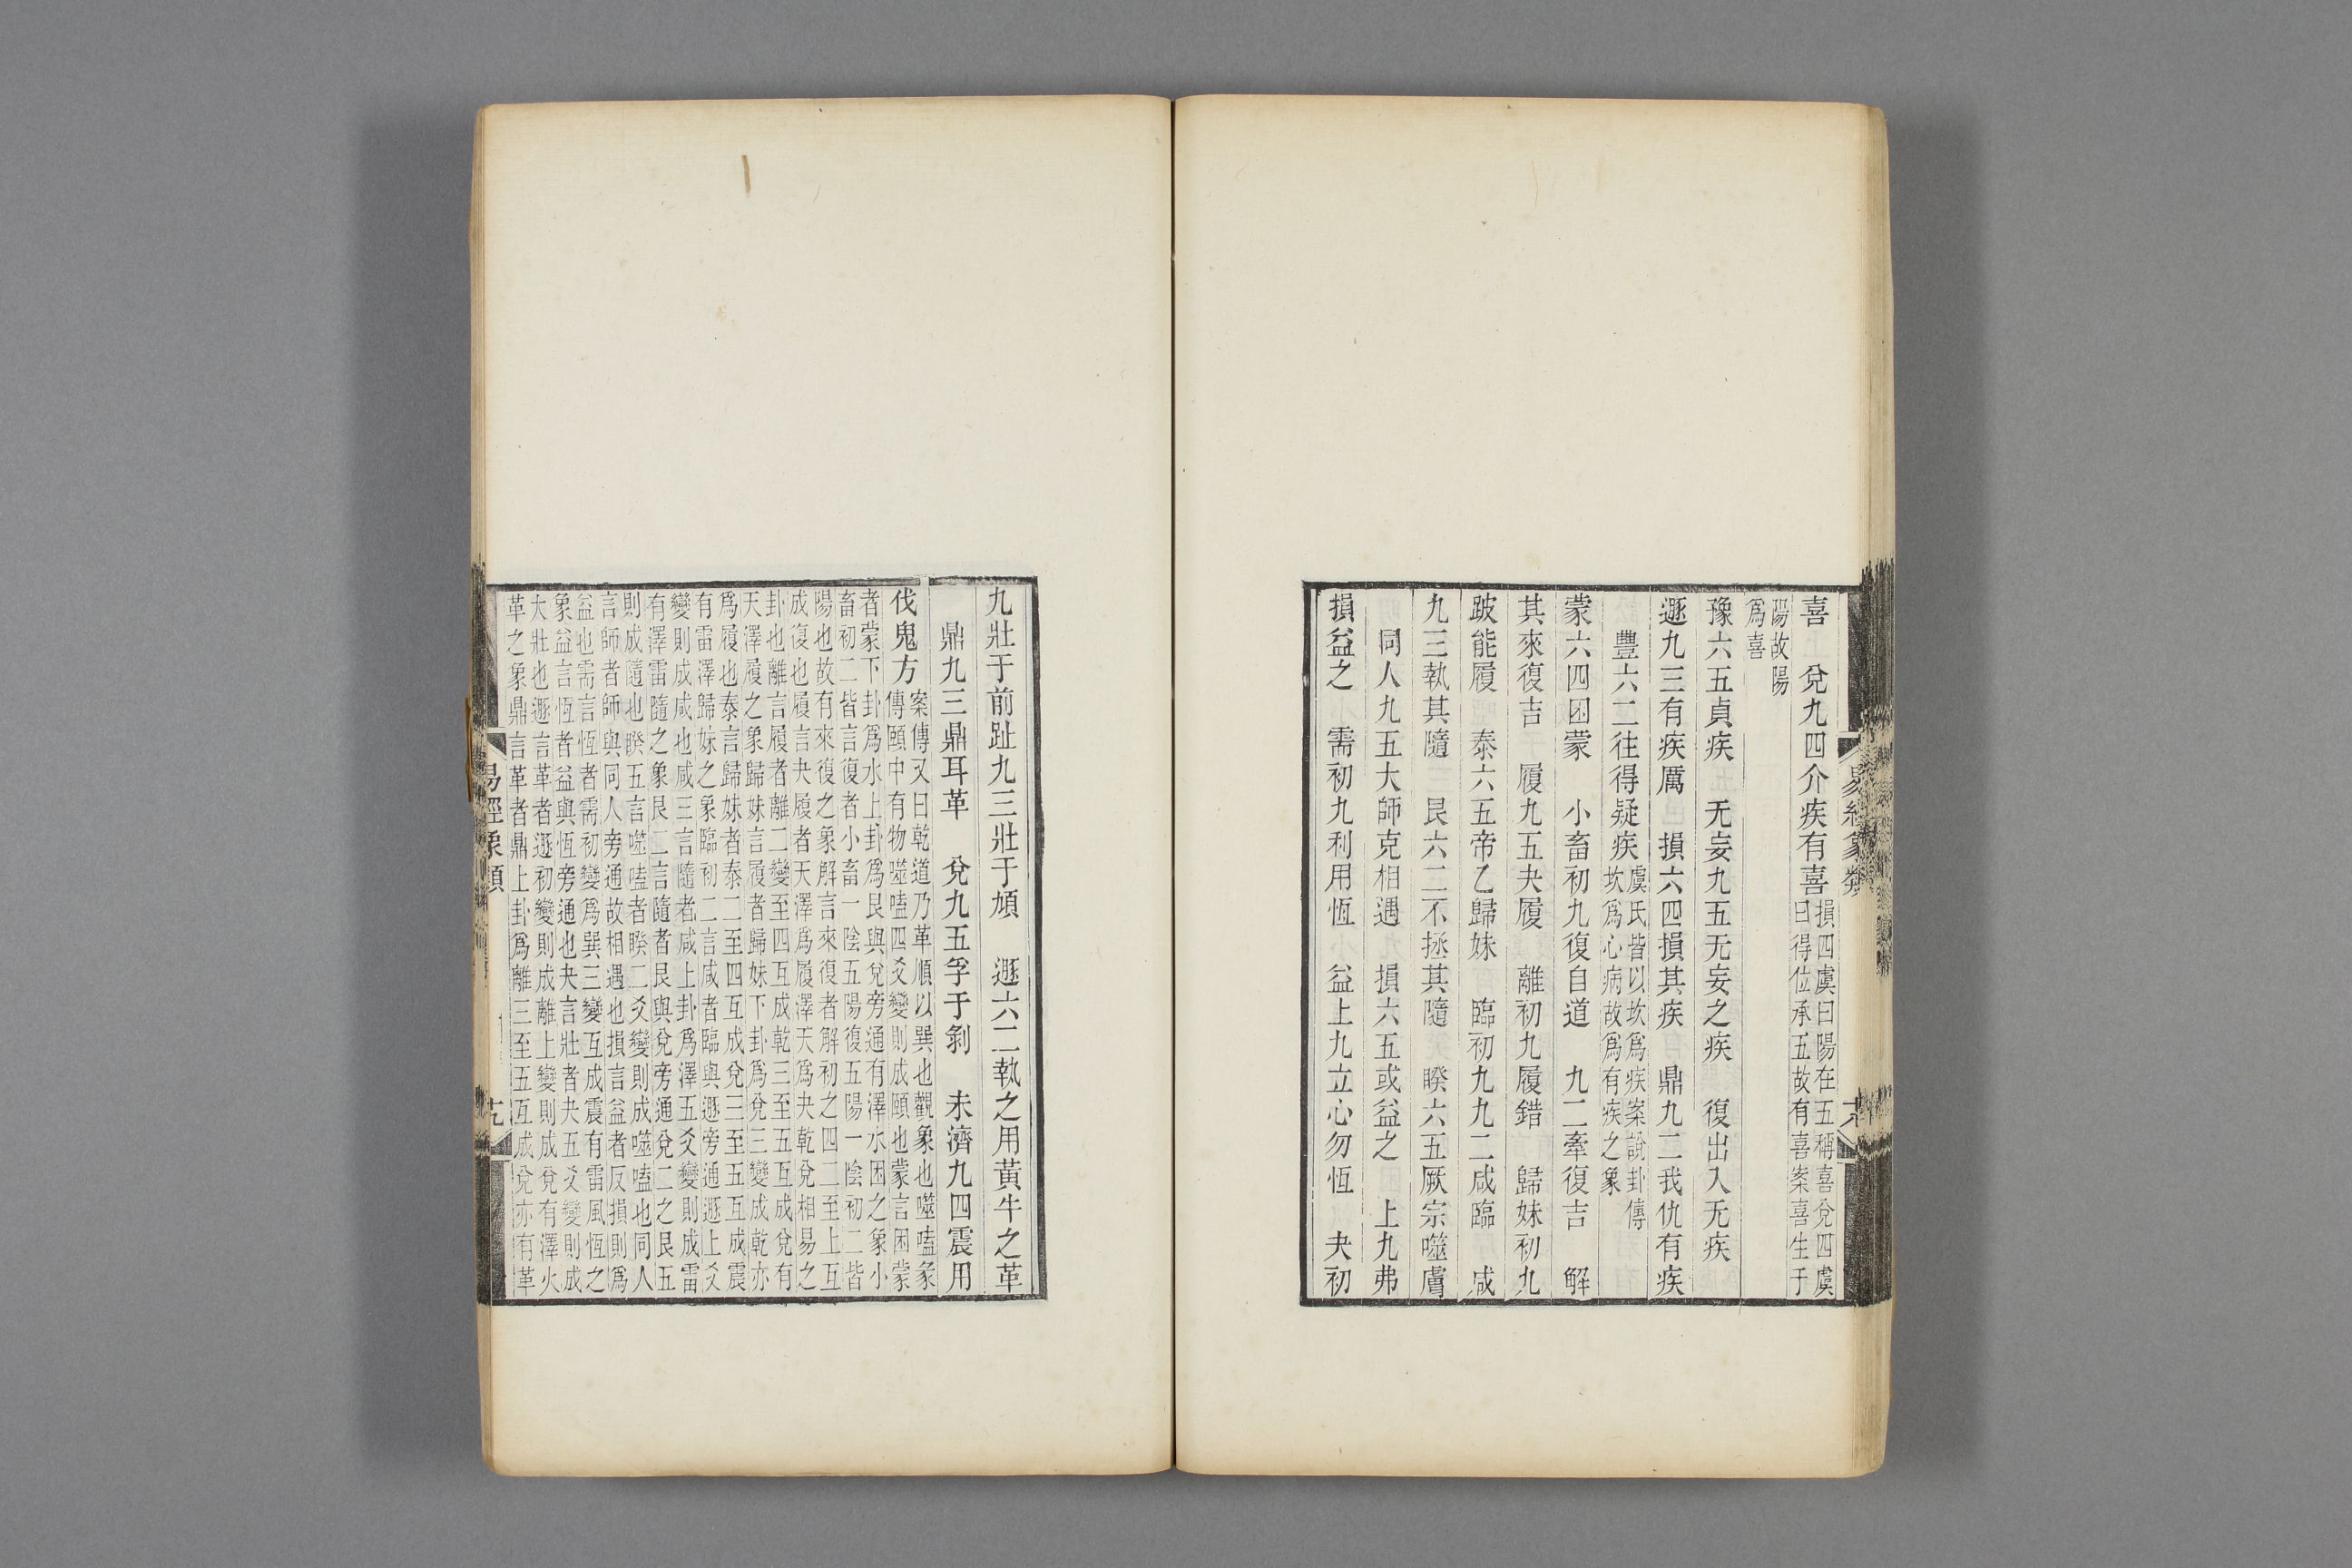 易經象類
十八
喜　兌九四介疾有喜損四虞曰陽在五稱喜兌四虞
曰得位承五故有喜案喜生于
陽故陽
爲喜
豫六五貞疾　无妄九五无妄之疾　復出入无疾
遯九三有疾厲　損六四損其疾　鼎九二我仇有疾
豐六二往得疑疾虞氏皆以坎爲疾案說卦傳
坎爲心病故爲有疾之象
蒙六四困蒙　小畜初九復自道　九二牽復吉　解
其來復吉　履九五夬履　離初九履錯　歸妹初九
跛能履　泰六五帝乙歸妹　臨初九九二咸臨　咸
九三執其隨　艮六二不拯其隨　睽六五厥宗噬膚
同人九五大師克相遇　損六五或益之　上九弗
損益之　需初九利用恆　益上九立心勿恆　夬初
九壯于前趾九三壯于頄　遯六二執之用黃牛之革
鼎九三鼎耳革　兌九五孚于剝　未濟九四震用
伐鬼方案傳又曰乾道乃革順以巽也觀象也噬嗑彖
傳頤中有物噬嗑四爻變則成頤也蒙言困蒙
者蒙下卦爲水上卦爲艮與兌旁通有澤水困之象小
畜初二皆言復者小畜一陰五陽復五陽一陰初二皆
陽也故有來復之象解言來復者解初之四二至上互
成復也履言夬履者天澤爲履澤天爲夬乾兌相易之
卦也離言履者離二變至四互成乾三至五互成兌有
天澤履之象歸妹言履者歸妹下卦爲兌三變成乾亦
爲履也泰言歸妹者泰二至四互成兌三至五互成震
有雷澤歸妹之象臨初二言咸者臨與遯旁通遯上爻
變則成咸也咸三言隨者咸上卦爲澤五爻變則成雷
有澤雷隨之象艮二言隨者艮與兌旁通兌二之艮五
則成隨也睽五言噬嗑者睽二爻變則成噬嗑也同人
言師者師與同人旁通故相遇也損言益者反損則爲
益也需言恆者需初變爲巽三變互成震有雷風恆之
象益言恆者益與恆旁通也夬言壯者夬五爻變則成
大壯也遯言革者遯初變則成離上變則成兌有澤火
革之象鼎言革者鼎上卦爲離三至五互成兌亦有革
易經象類
十九